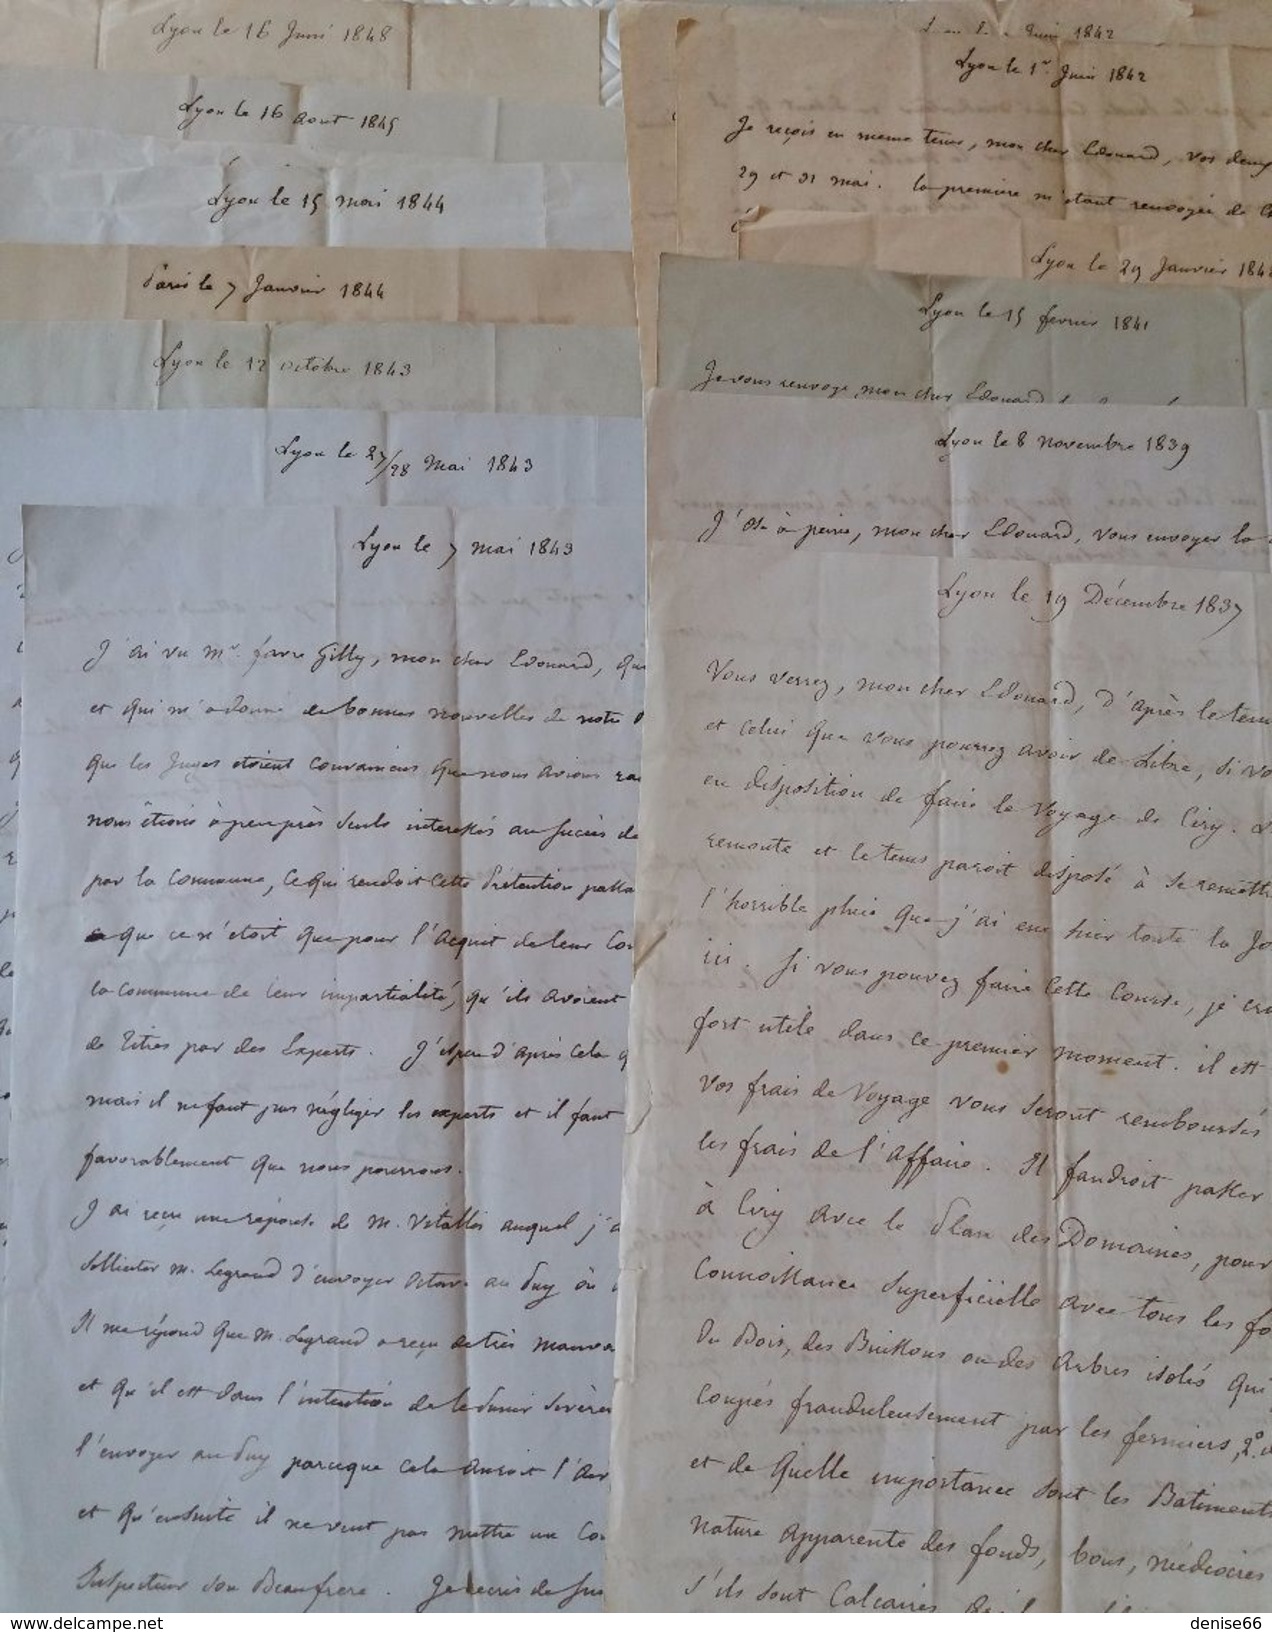 Lyon le 16 Juin 1848
Lyon le 16 aout 1845
Lyon le 15 mai 1844
Paris le 7 Janvier 1844
Lyon le 12 octobre 1843
Lyon le 27/28 Mai 1843
Lyon le 7 mai 1843
J'ai vu Mr. favre Gilly, mon cher Edouard, que
et qui m'a donné de bonnes nouvelles de notre
que les Juges etoient convaincus que nous avions
nous étions à peu près seuls interessés au succès de
par la Commune, ce qui rendoit cette Prétention
que ce n'étoit que pour l'acquit de leur
la commune de leur impartialité, qu'ils avoient
de Titres par des Experts. J'espere d'après cela
mais il ne faut pas négliger les experts et il faut
favorablement que nous pourrons.
J'ai reçu une réponse de M. Vitallis auquel j'
solliciter M. Legrand d'envoyer Octave au Puy où
Il me répond que M. Legrand a reçu de très
et qu'il est dans l'intention de le
l'envoyer au Puy parceque cela auroit l'air
et qu'ensuite il ne veut pas mettre un
Inspecteur son Beaufrere. Je
Juin 1842
Lyon le 1er Juin 1842
Je reçois en meme tems, mon cher Edouard, vos deux
29 et 31 mai. la première m'etant renvoyée de
Lyon le 29 Janvier 184
Lyon le 15 fevrier 1841
Je vous renvoye, mon cher Edouard
Lyon le 8 novembre 1839
J'ose à peine, mon cher Edouard, vous envoyer la
Lyon le 19 Décembre 1837
Vous verrez, mon cher Edouard, d'après le
et celui que vous pourrez avoir de Libre, si
en disposition de faire le Voyage de Ciry.
remonte et le tems paroit disposé à se
l'horrible pluie que j'ai eue hier toute la
ici. Si vous pouvez faire cette Course, je
fort utile dans ce premier moment. il est
vos frais de Voyage vous seront remboursés
les frais de l'affaire. Il faudroit passer
à Ciry avec le Plan des Domaines, pour
Connoissance superficielle avec tous les
Du Bois, des Buissons ou des Arbres isolés qui
coupés frauduleusement par les fermiers, 2º.
et de quelle importance sont les Batiments
nature apparente des fonds, bons, médiocres
s'ils sont Calcaires
delcampe.net
denise66